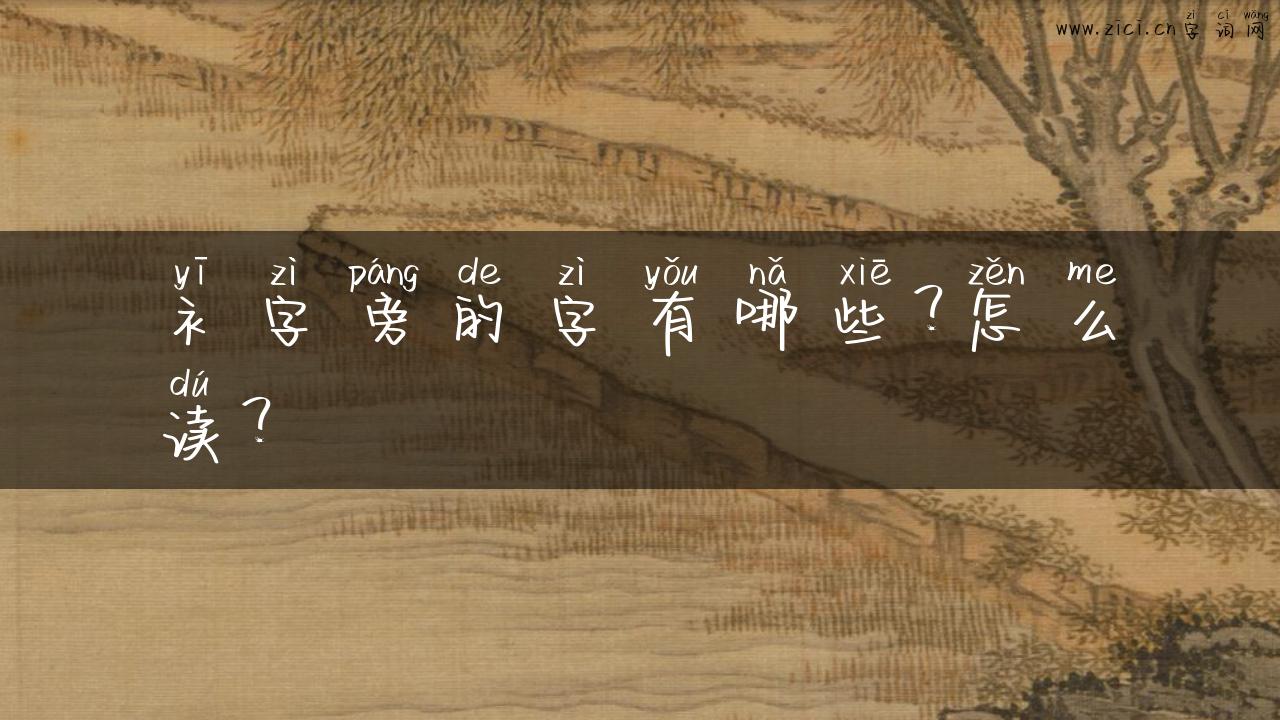 zì cí wǎng
www.zici.cn字词网
yī zì páng de zì yǒu nǎ xiē zěn me
衤字旁的字有哪些？怎么
dú
读？